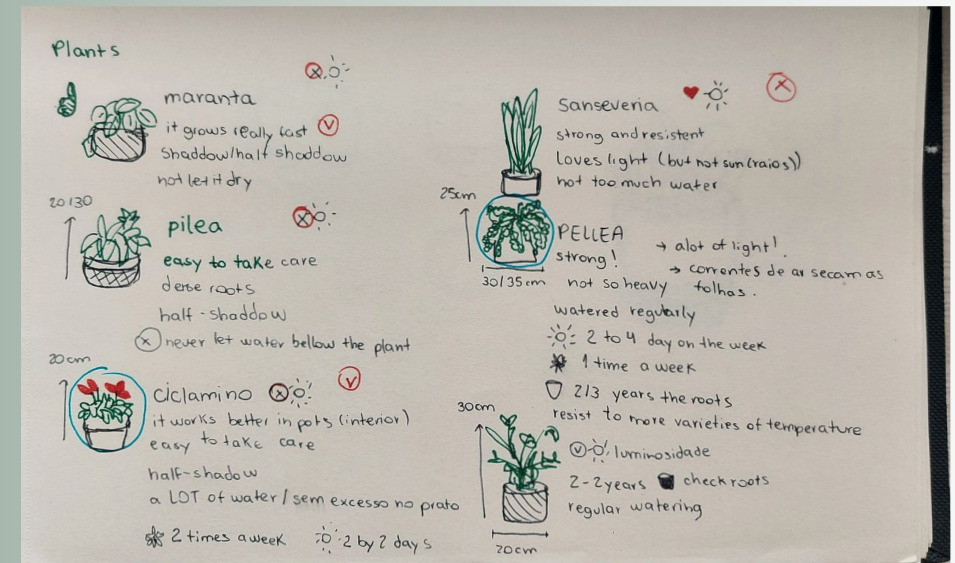 Plants
maranta
it grows really fast V
Shaddow/half shaddow
not let it dry
20/30
pilea
easy to take care
dese roots
half-shaddow
x never let water bellow the plant
20cm
ciclamino x V
it works better in pots (interior)
easy to take care
half-shadow
a LOT of water / sem excesso no prato
2 times a week 2 by 2 days
Sanseveria x
strong and resistent
Loves light (but not sun (raios))
not too much water
25cm
30/35cm
PELLEA
strong!
not so heavy
→ alot of light!
→ correntes de ar secam as
folhas.
watered regularly
2 to 4 day on the week
1 time a week
2/3 years the roots
resist to more varieties of temperature
30cm
V luminosidade
2-2 years check roots
regular watering
20cm